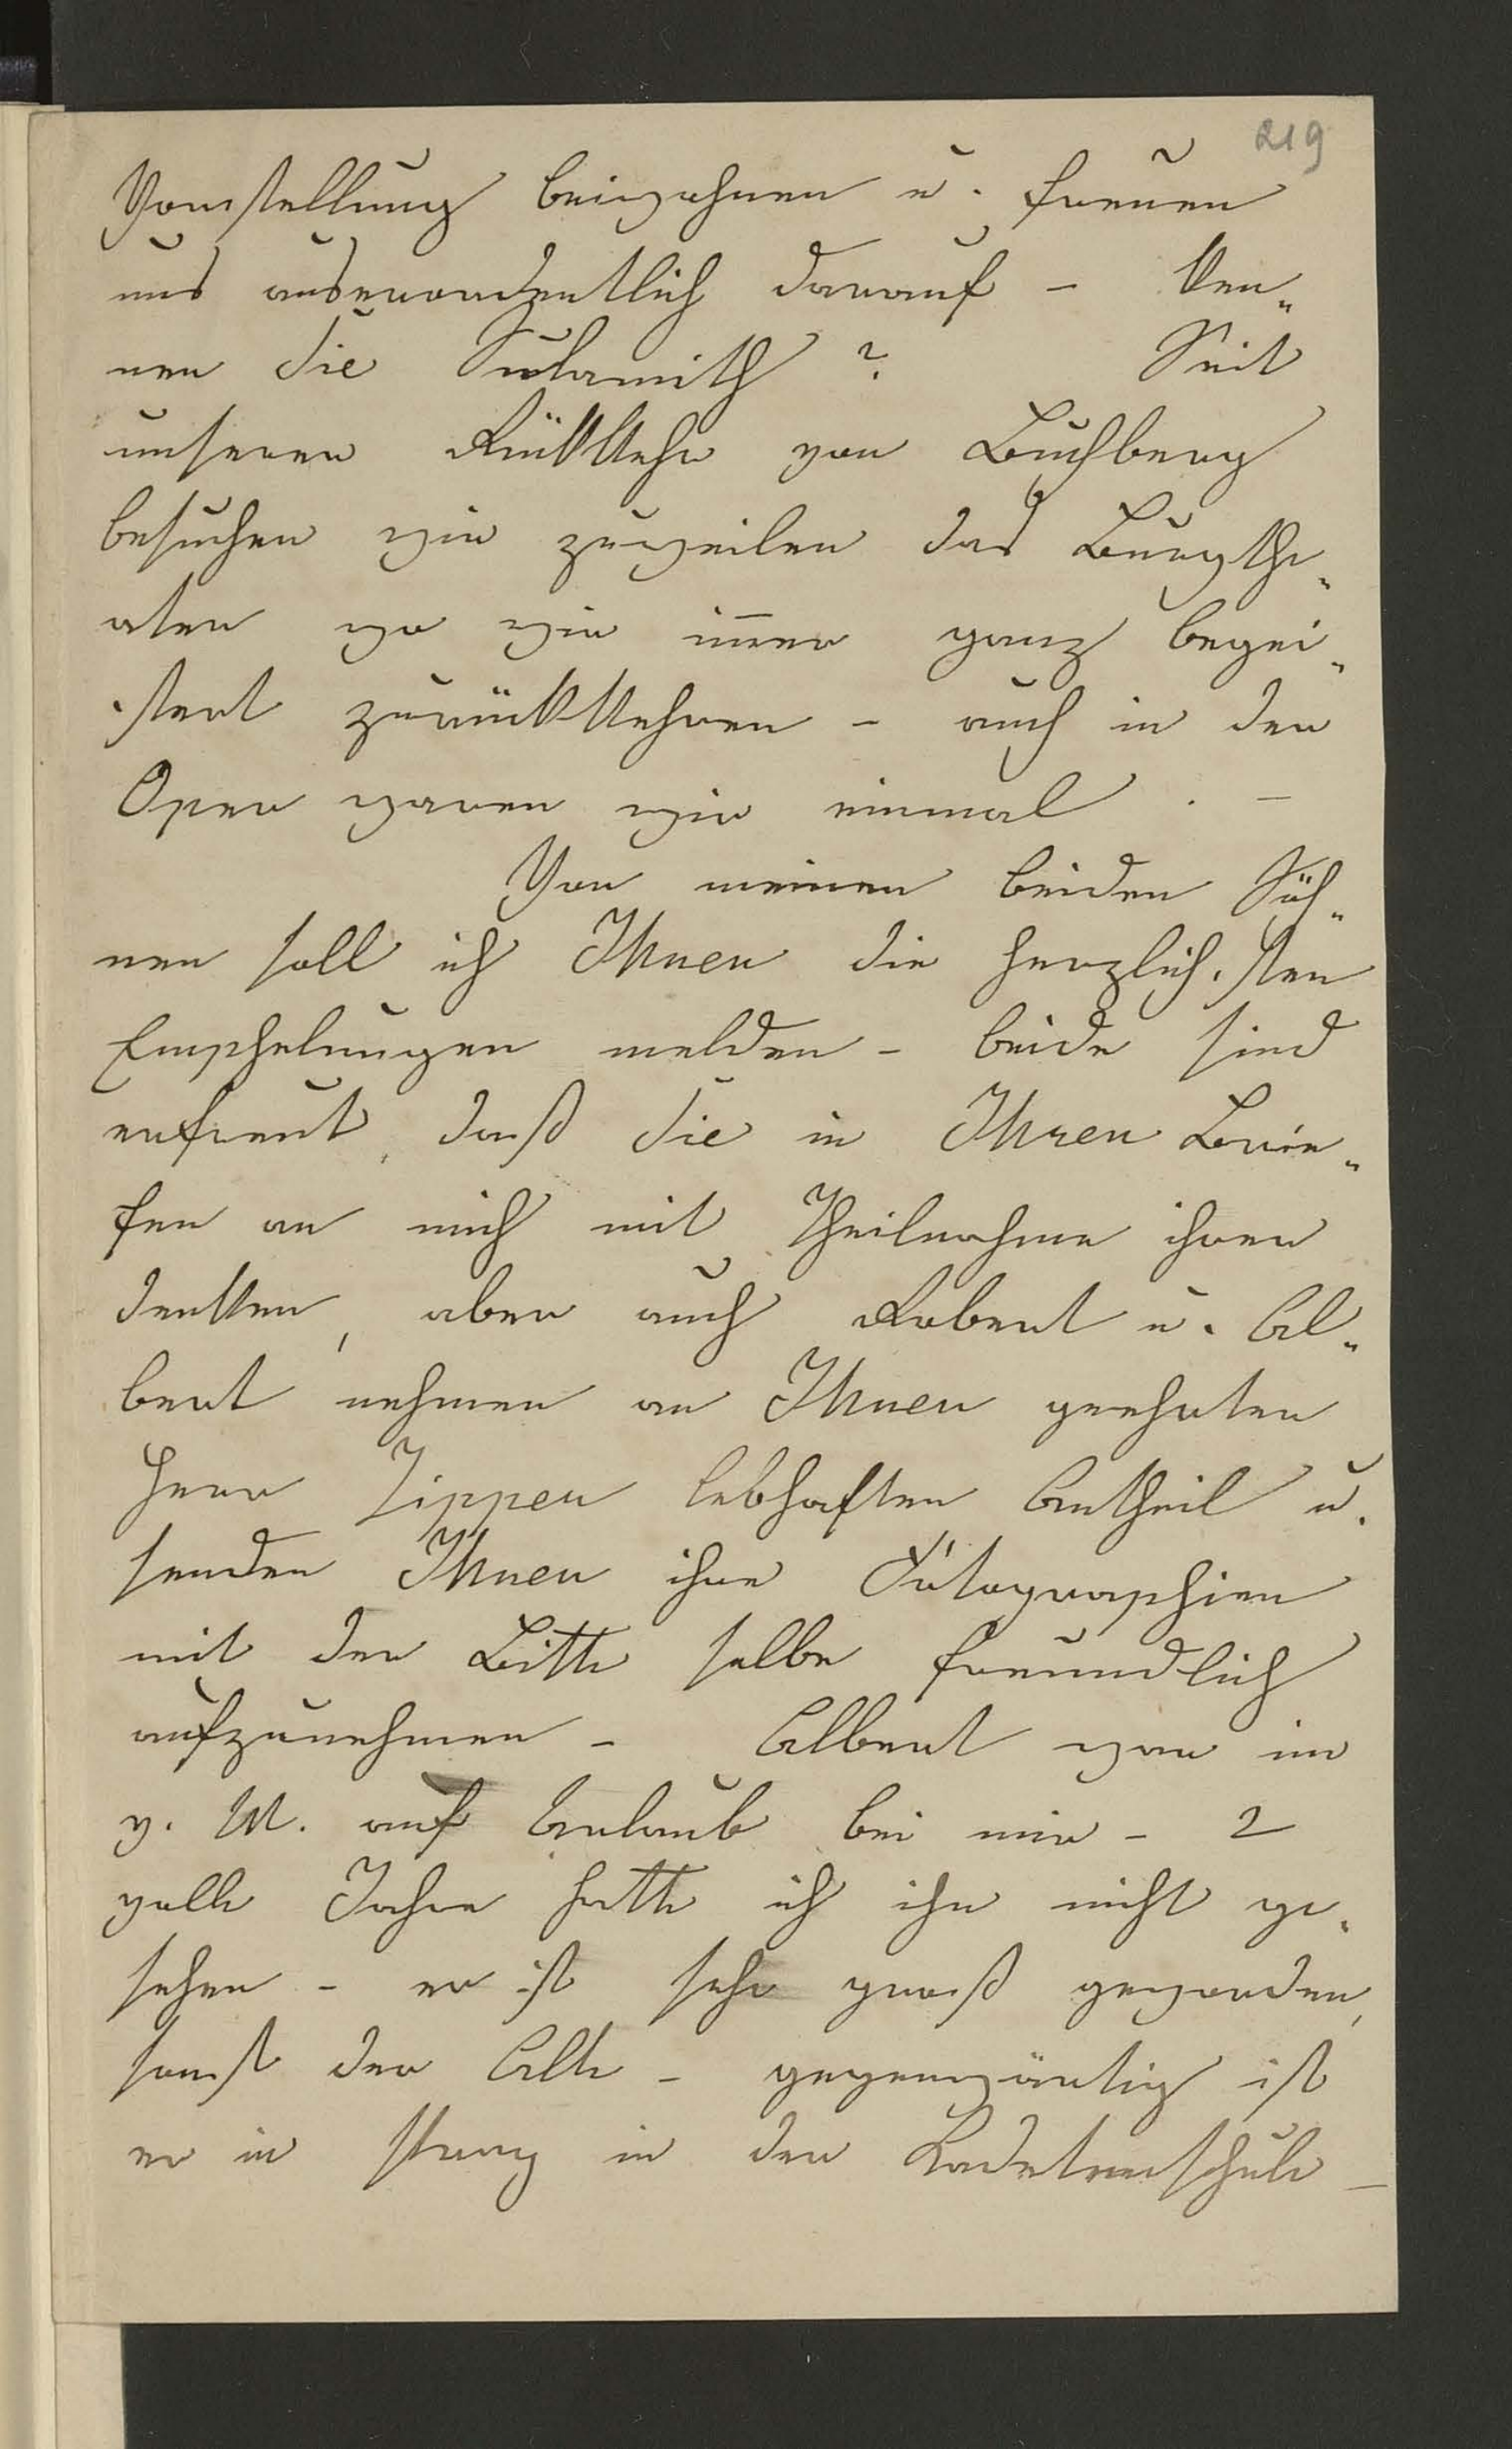 219
Vorstellung beiwohnen u. freuen
uns auserordentlich darauf – Ken„
nen Sie Sulamith? Seit
unserer Rükkehr von Buchberg
besuchen wir zuweilen das Burgthe„
ater wo wir im̅er ganz begei„
stert zurükkehren – auch in der
Oper waren wir einmal. –
Von meinen beiden Söh„
nen soll ich Ihnen die herzlichsten
Empfehlungen melden – beide sind
erfreut, daß Sie in Ihren Brie„
fen an mich mit Theilnahme ihrer
denken, aber auch Robert u. Al„
bert nehmen an Ihnen geehrter
Herr Zipper lebhaften Antheil u.
senden Ihnen ihre Fotographien
mit der Bitte selbe freundlich
aufzunehmen – Albert war im
v. M. auf Urlaub bei mir – 2
volle Jahre hatte ich ihn nicht ge„
sehen – er ist sehr groß geworden,
sonst der Alte – gegenwärtig ist
er in Prag in der Kadetenschule –